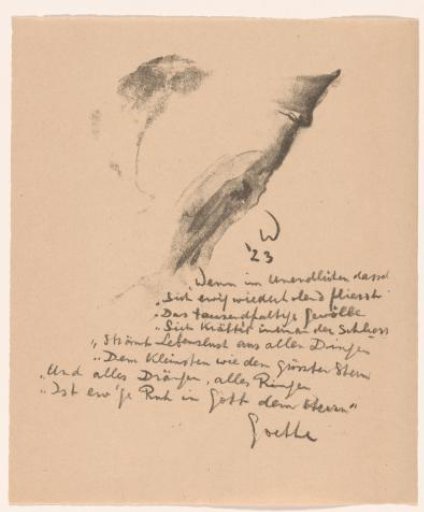 W
'23
Wenn im Unendlichen dassel
„Sich ewig wiederholend fliesst
„Das tausendfaltige Gewölbe
„Sich Kräftig in einander Schloss
„Strömt Lebenslust aus allen Dingen
„Dem Kleinsten wie dem grössten Stern
„Und alles Drängen, alles Ringen
„Ist ew'ge Ruh in Gott dem Herrn"
Goethe